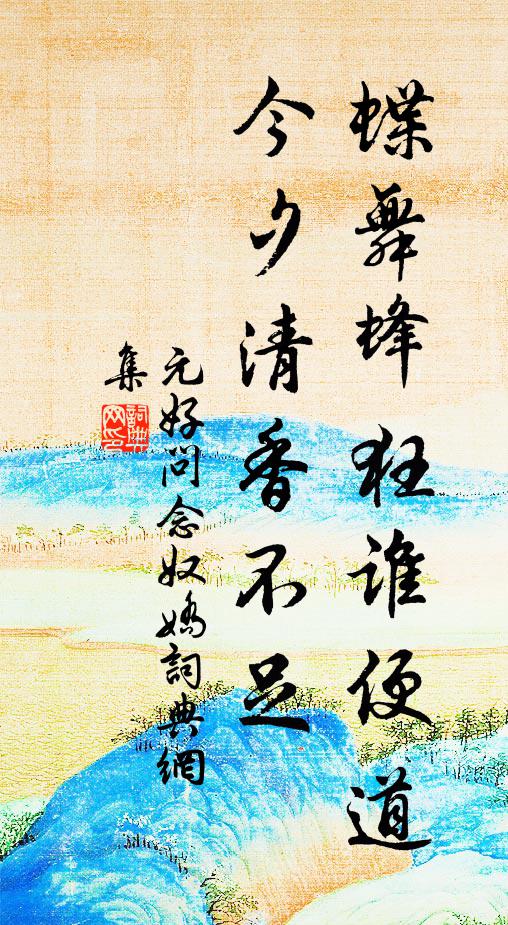 蝶舞蜂狂谁便道
今夕清香不足
元好问念奴嬌詞典網
集
詞典网印